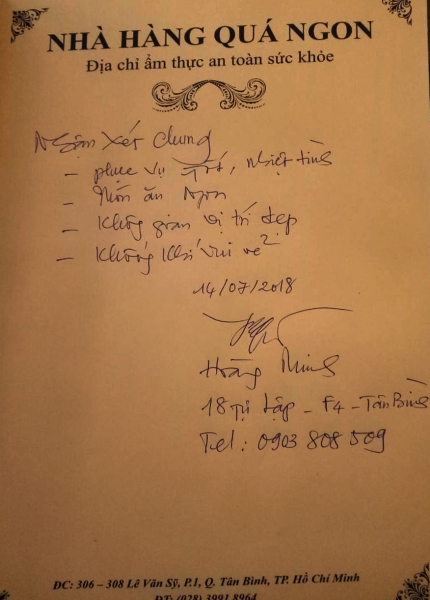 NHÀ HÀNG QUÁ NGON
Địa chỉ ẩm thực an toàn sức khỏe
Nhận xét chung
- phục vụ Tốt, nhiệt tình
- Món ăn Ngon
- Không gian vị trí đẹp
- Không khí vui vẻ
14/07/2018
Hoàng Minh
18 Tự Lập - F4 - Tân Bình
Tel: 0903 808 509
ĐC: 306 – 308 Lê Văn Sỹ, P.1, Q. Tân Bình, TP. Hồ Chí Minh
ĐT: (028) 3991 8964